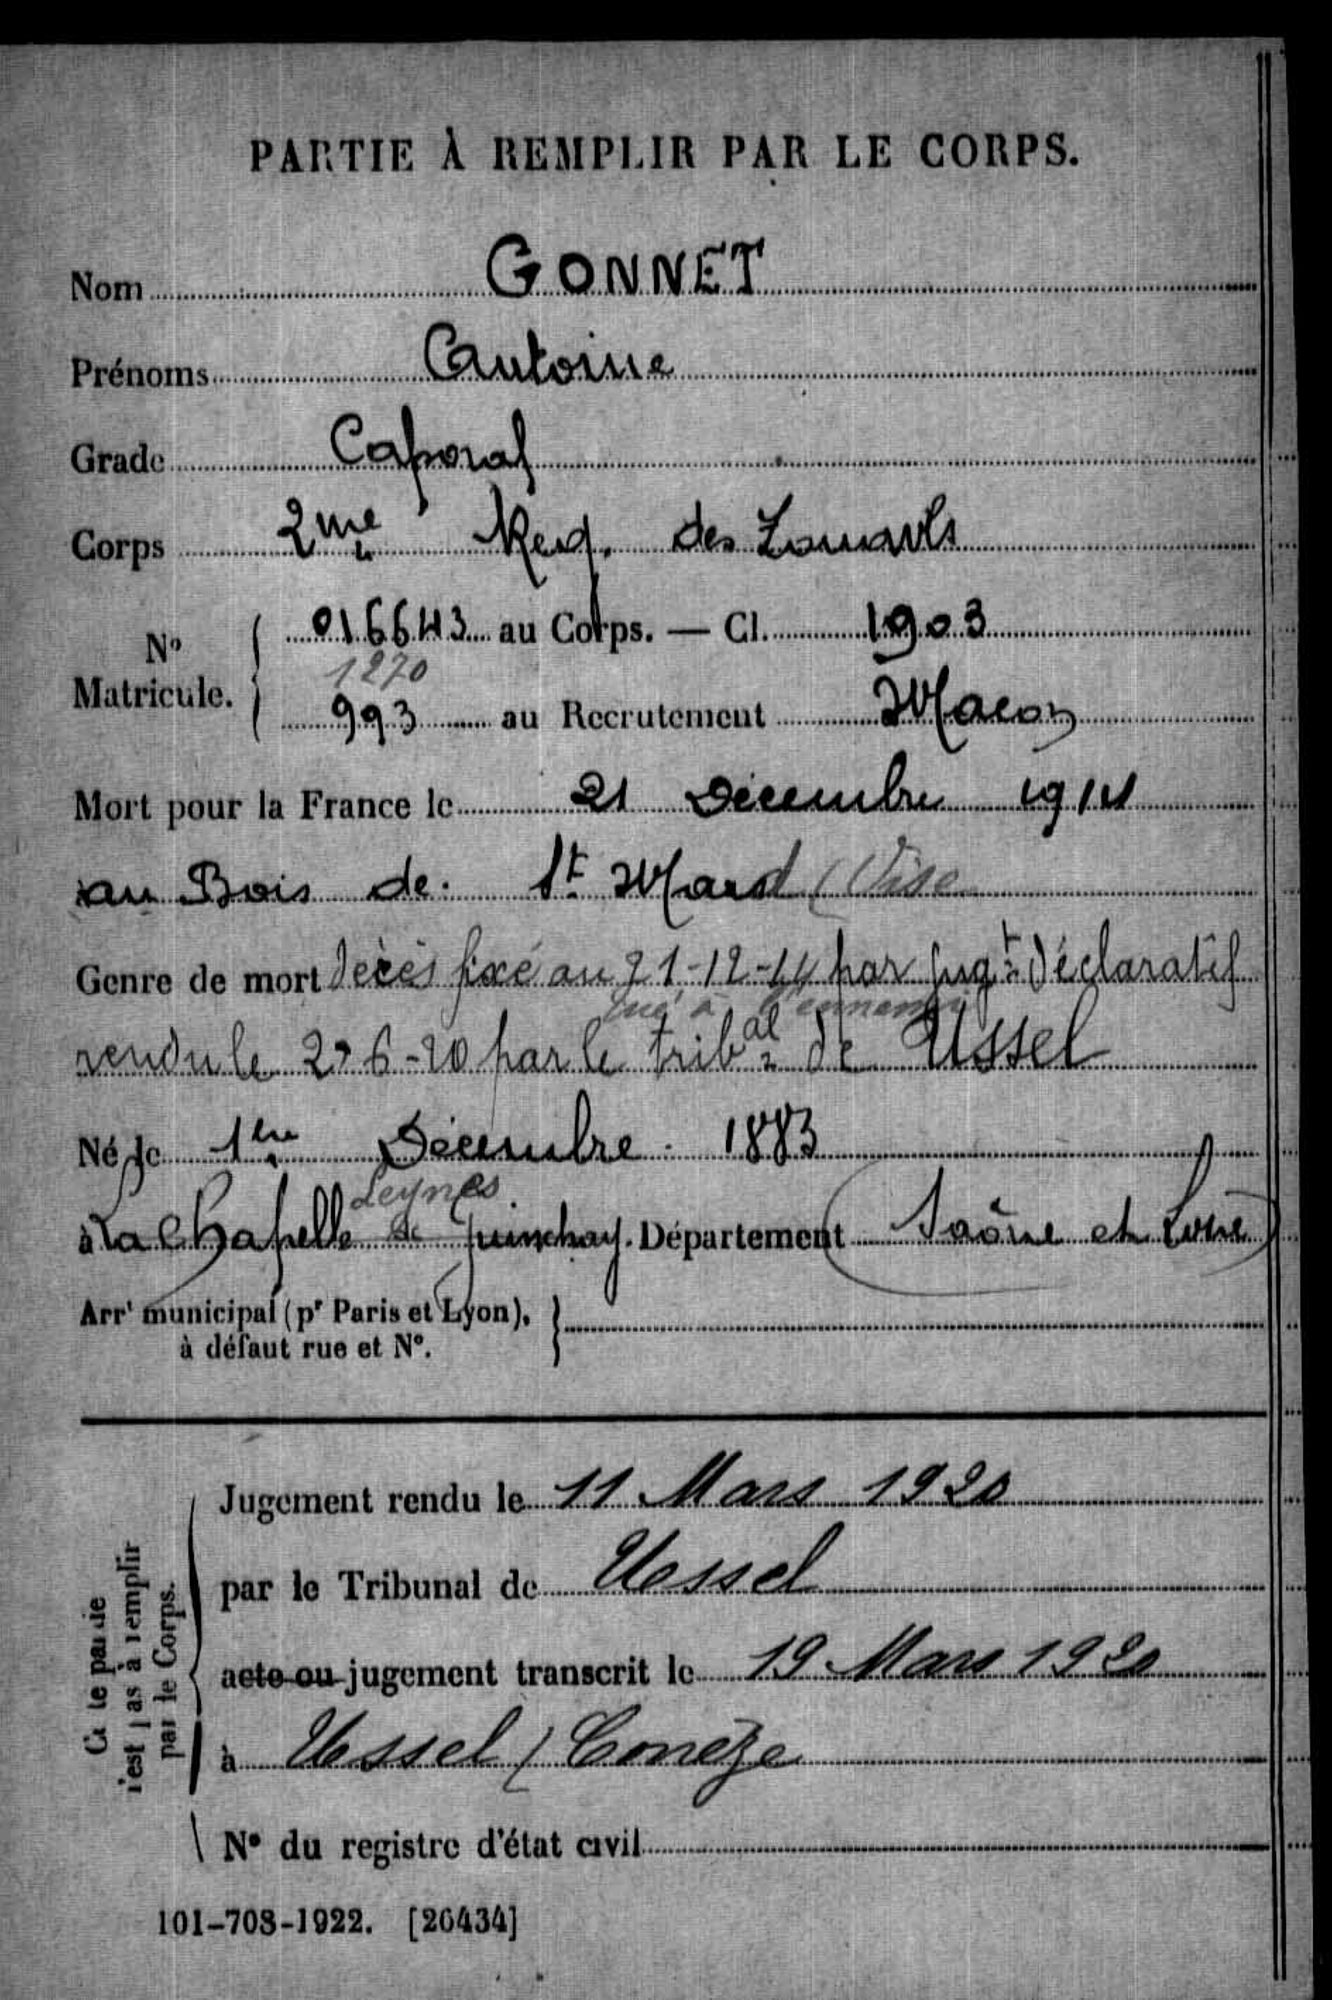 PARTIE À REMPLIR PAR LE CORPS.
Nom GONNET
Prénoms Antoine
Grade Caporal
Corps 2me Reg. des Zouaves
No Matricule. 016643 au Corps. — Cl. 1903
1270
993 au Recrutement Macon
Mort pour la France le 21 Décembre 1914
au Bois de St Mard (Oise
Genre de mort décès fixé au 21-12-14 par jugt déclaratif
tué à l'ennemi
rendu le 2-6-20 par le tribal de Ussel
Né le 1er Décembre 1883
Leynes
à La Chapelle de Guinchay. Département (Saône et Loire)
Arrt municipal (pr Paris et Lyon),
à défaut rue et N°.
Cette partie
n'est pas à remplir
par le Corps.
Jugement rendu le 11 Mars 1920
par le Tribunal de Ussel
acte ou jugement transcrit le 19 Mars 1920
à Ussel (Corrèze
N° du registre d'état civil
101-708-1922. [26434]